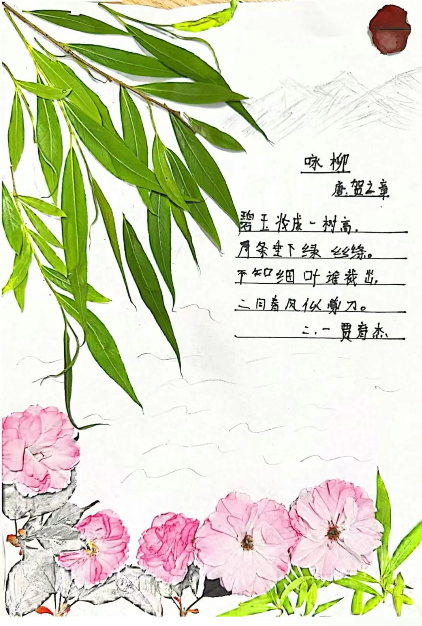 咏柳
唐.贺之章
碧玉妆成一树高.
万条垂下绿丝绦。
不知细叶谁裁出.
二月春风似剪刀。
二.一 贾春杰